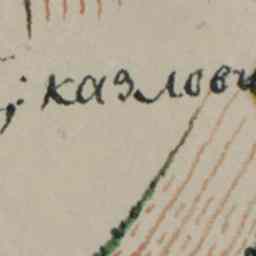 ; казлови